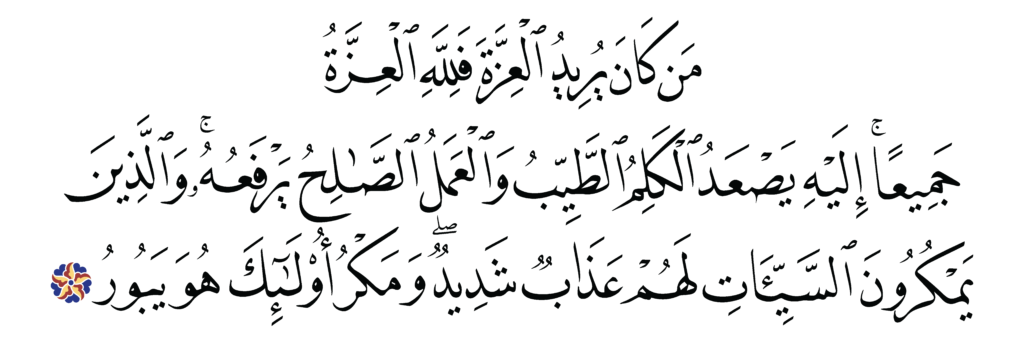 مَن كَانَ يُرِيدُ ٱلْعِزَّةَ فَلِلَّهِ ٱلْعِزَّةُ
جَمِيعًا ۚ إِلَيْهِ يَصْعَدُ ٱلْكَلِمُ ٱلطَّيِّبُ وَٱلْعَمَلُ ٱلصَّـٰلِحُ يَرْفَعُهُۥ ۚ وَٱلَّذِينَ
يَمْكُرُونَ ٱلسَّيِّـَٔاتِ لَهُمْ عَذَابٌ شَدِيدٌ ۖ وَمَكْرُ أُو۟لَـٰٓئِكَ هُوَ يَبُورُ